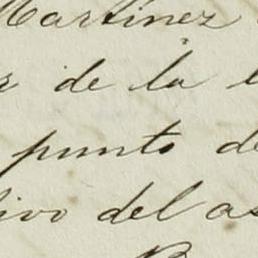 Martinez
de la
punto de
ivo del as